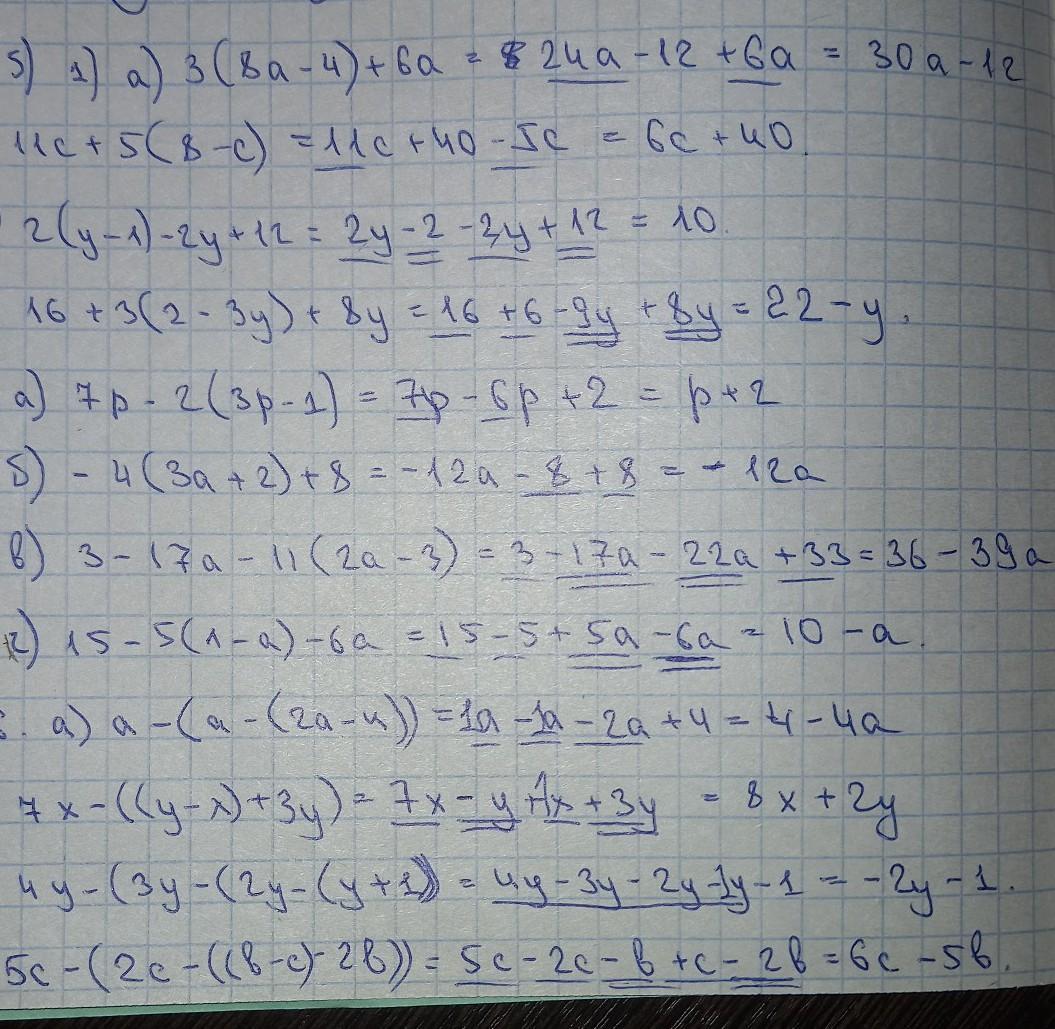 5) 1) а) 3(8a-4)+6a = 24a-12+6a = 30a-12
11c+5(8-c) = 11c+40-5c = 6c+40.
2(y-1)-2y+12 = 2y-2-2y+12 = 10.
16+3(2-3y)+8y = 16+6-9y+8y = 22-y.
а) 7p-2(3p-1) = 7p-6p+2 = p+2
б) -4(3a+2)+8 = -12a-8+8 = -12a
в) 3-17a-11(2a-3) = 3-17a-22a+33 = 36-39a
г) 15-5(1-a)-6a = 15-5+5a-6a = 10-a.
а) a-(a-(2a-4)) = 1a-1a-2a+4 = 4-4a
7x-((y-x)+3y) = 7x-y+1x+3y = 8x+2y
4y-(3y-(2y-(y+1)) = 4y-3y-2y-1y-1 = -2y-1.
5c-(2c-((b-c)-2b)) = 5c-2c-b+c-2b = 6c-5b.